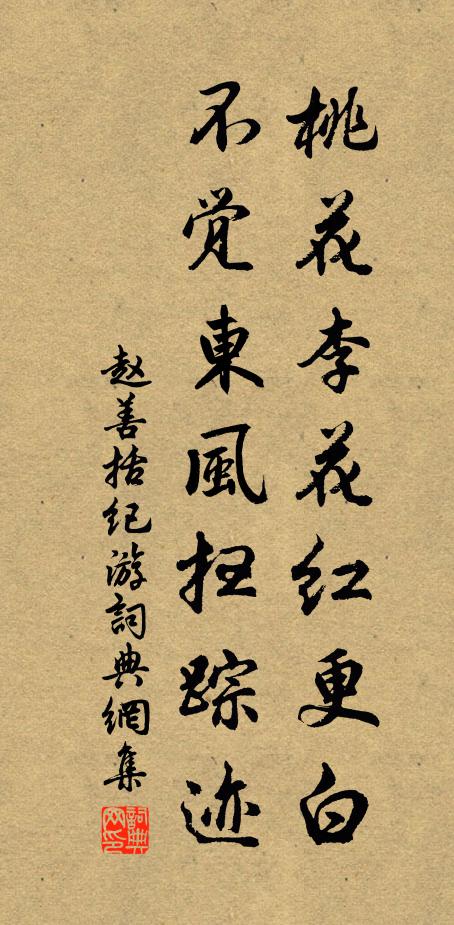 桃花李花红更白
不觉東風扫踪迹
赵善括纪游詞典網集
詞典网印